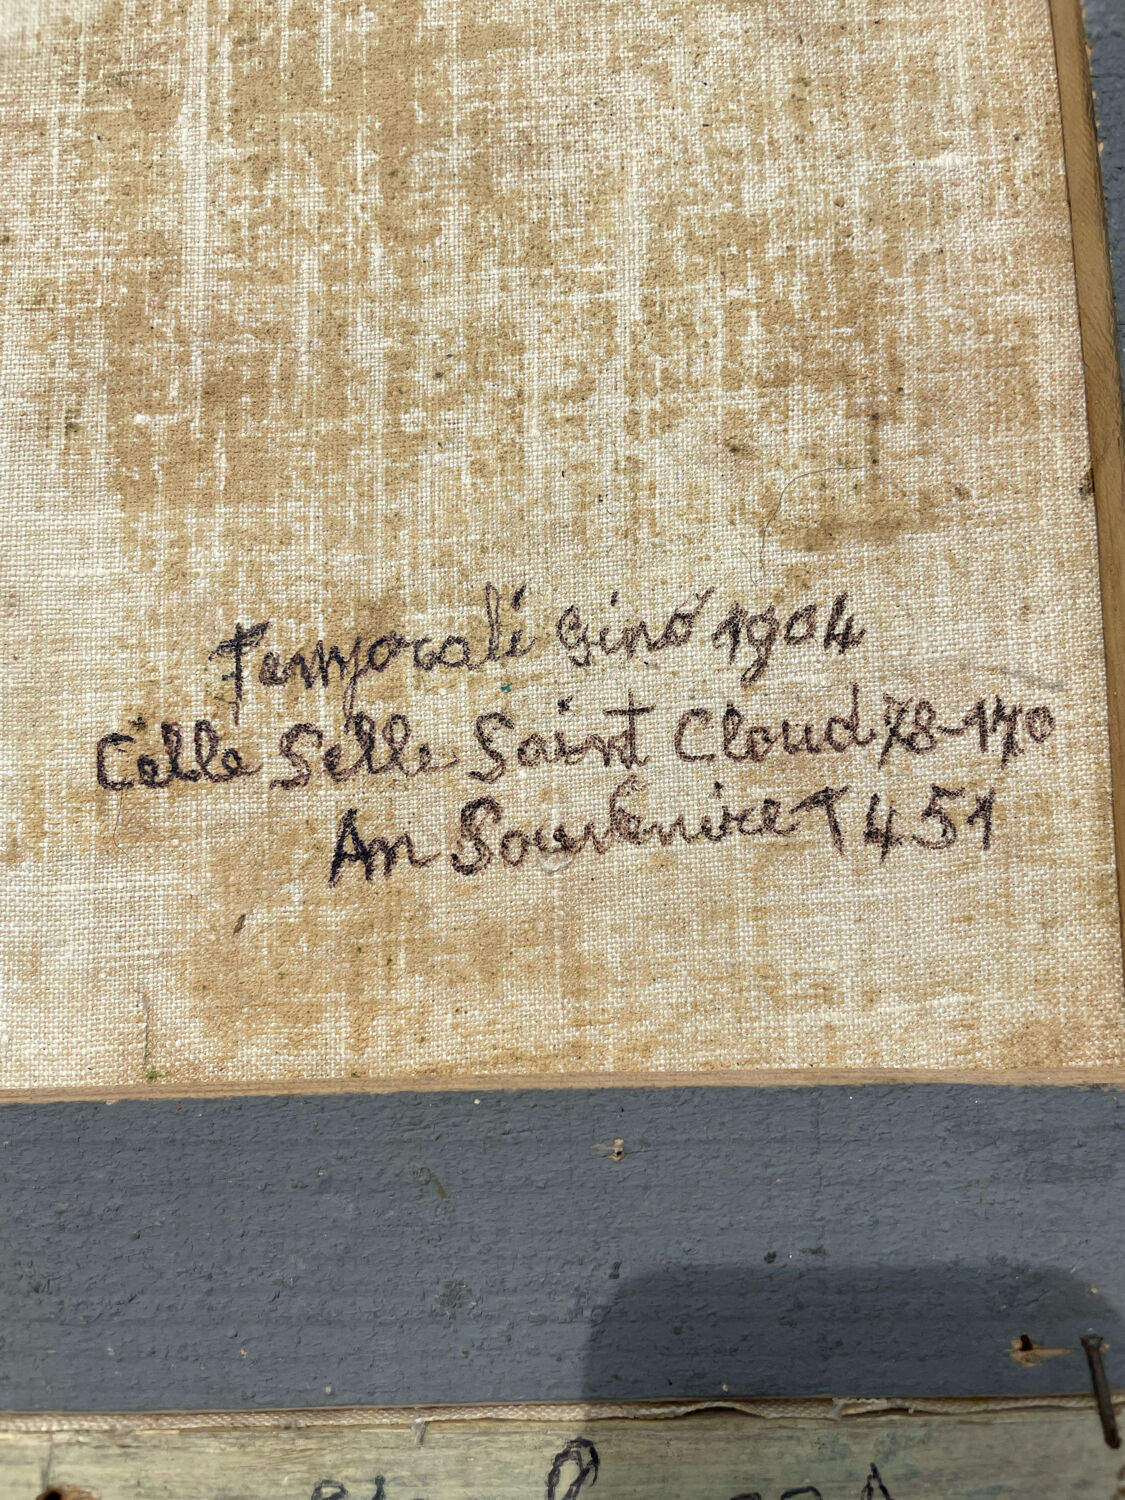 Temporali Gino 1904
Celle Selle Saint Cloud 78-170
An Souvenire T 451